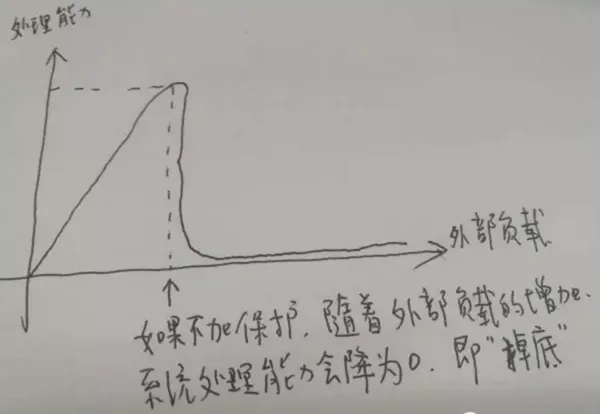 处理能力
外部负载
如果不加保护，随着外部负载的增加、
系统处理能力会降为0。即“掉底”